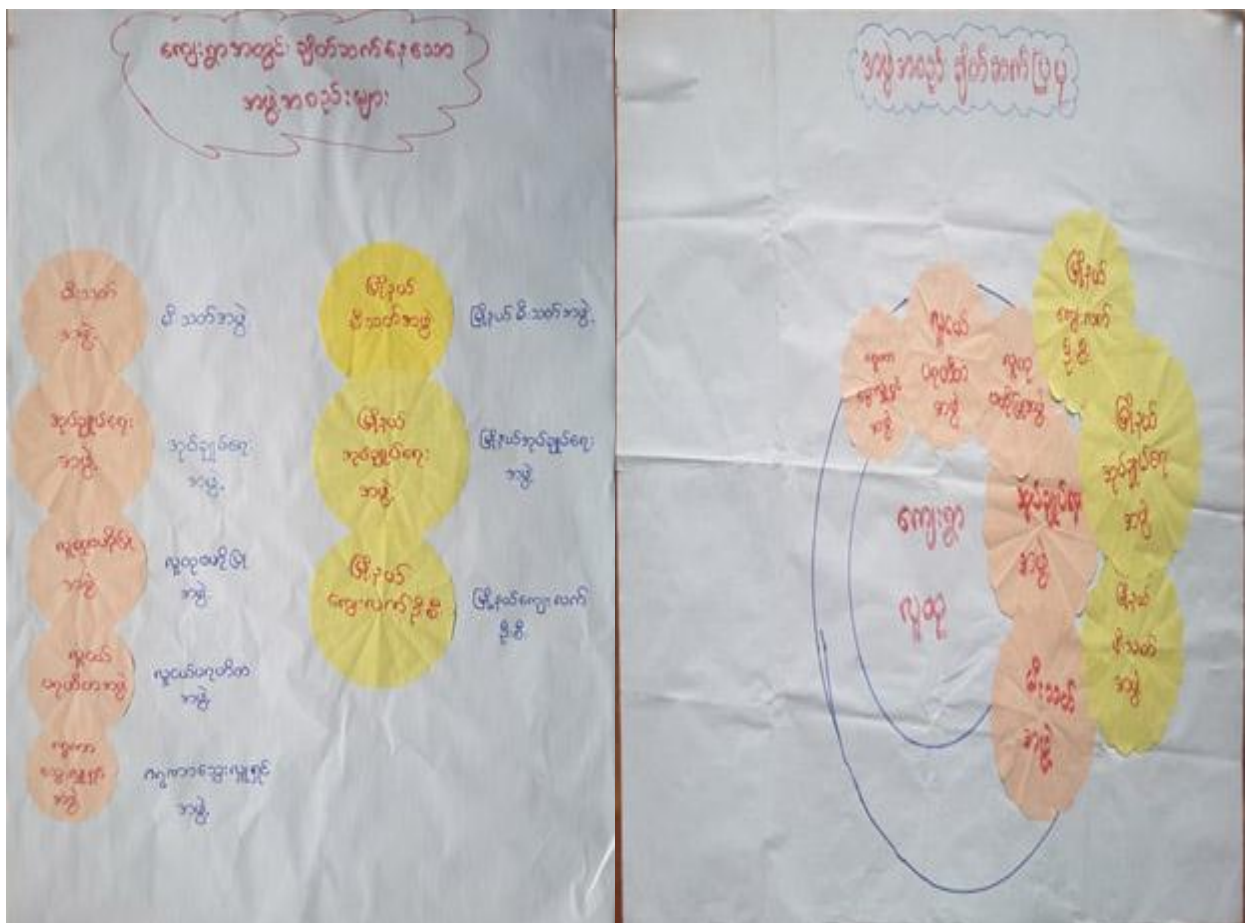 ကျေးရွာအတွင်း ချိတ်ဆက်နေသော
အဖွဲ့အစည်းများ
မီးသတ်
အဖွဲ့
မီးသတ်အဖွဲ့
အုပ်ချုပ်ရေး
အဖွဲ့
အုပ်ချုပ်ရေး
အဖွဲ့
လူထုဗဟိုပြု
အဖွဲ့
လူထုဗဟိုပြု
အဖွဲ့
လူငယ်
ပရဟိတအဖွဲ့
လူငယ်ပရဟိတ
အဖွဲ့
သွေးလှူရှင်
အဖွဲ့
သွေးလှူရှင်
အဖွဲ့
မြို့နယ်
မီးသတ်အဖွဲ့
မြို့နယ်မီးသတ်အဖွဲ့
မြို့နယ်
အုပ်ချုပ်ရေး
အဖွဲ့
မြို့နယ်အုပ်ချုပ်ရေး
အဖွဲ့
မြို့နယ်
ကျေးလက်ဦးစီး
မြို့နယ်ကျေးလက်
ဦးစီး
အဖွဲ့အစည်းချိတ်ဆက်ပြပုံ
သွေးလှူရှင်
အဖွဲ့
လူငယ်
ပရဟိတ
အဖွဲ့
လူထု
ဗဟိုပြုအဖွဲ့
မြို့နယ်
ကျေးလက်
ဦးစီး
မြို့နယ်
အုပ်ချုပ်ရေး
အဖွဲ့
ကျေးရွာ
လူထု
အုပ်ချုပ်ရေး
အဖွဲ့
မြို့နယ်
မီးသတ်
အဖွဲ့
မီးသတ်
အဖွဲ့